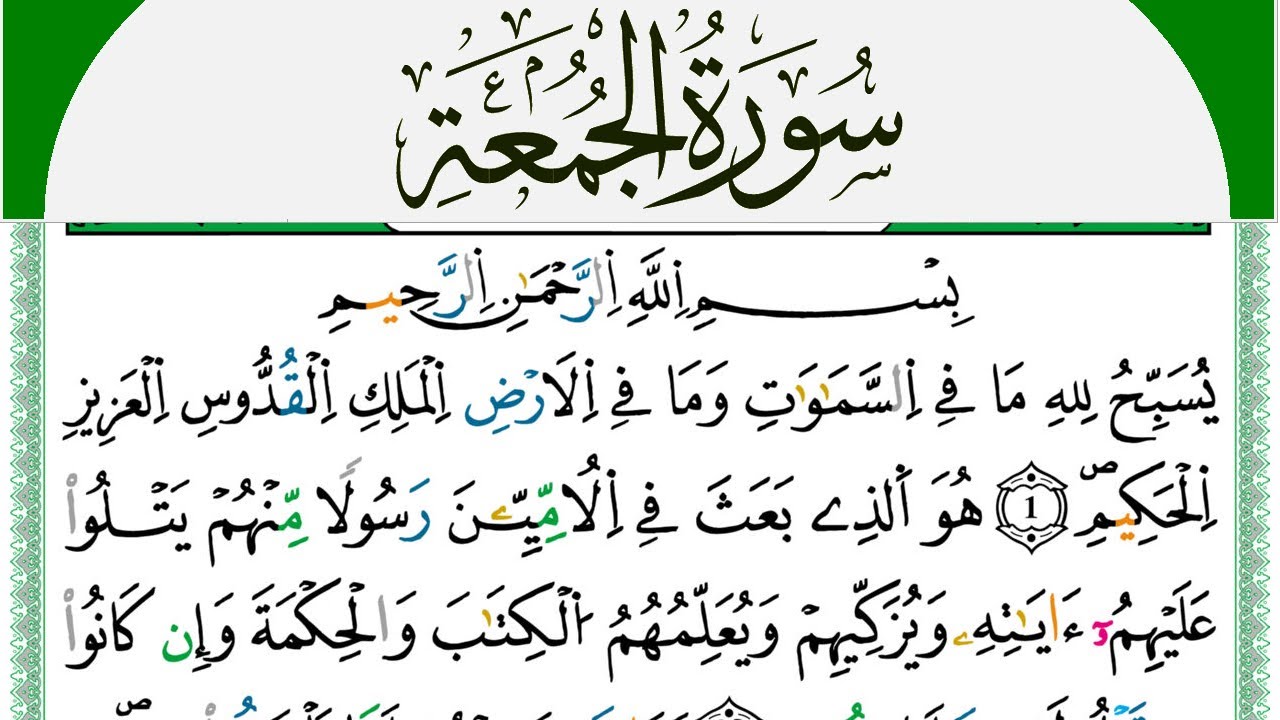 سُورَةُ الْجُمُعَةِ
بِسْمِ اِللَّهِ اِلرَّحْمَٰنِ اِلرَّحِيمِ
يُسَبِّحُ لِلهِ مَا فِے اِلسَّمَٰوَٰتِ وَمَا فِے اِلَارْضِ اِلْمَلِكِ اِلْقُدُّوسِ اِلْعَزِيزِ
اِلْحَكِيمِۖ 1 هُوَ اَلذِے بَعَثَ فِے اِلُامِّيِّـۧنَ رَسُولًا مِّنْهُمْ يَتْلُواْ
عَلَيْهِمُۥٓ ءَايَٰتِهِۦ وَيُزَكِّيهِمْ وَيُعَلِّمُهُمُ اُلْكِتَٰبَ وَالْحِكْمَةَ وَإِن كَانُواْ